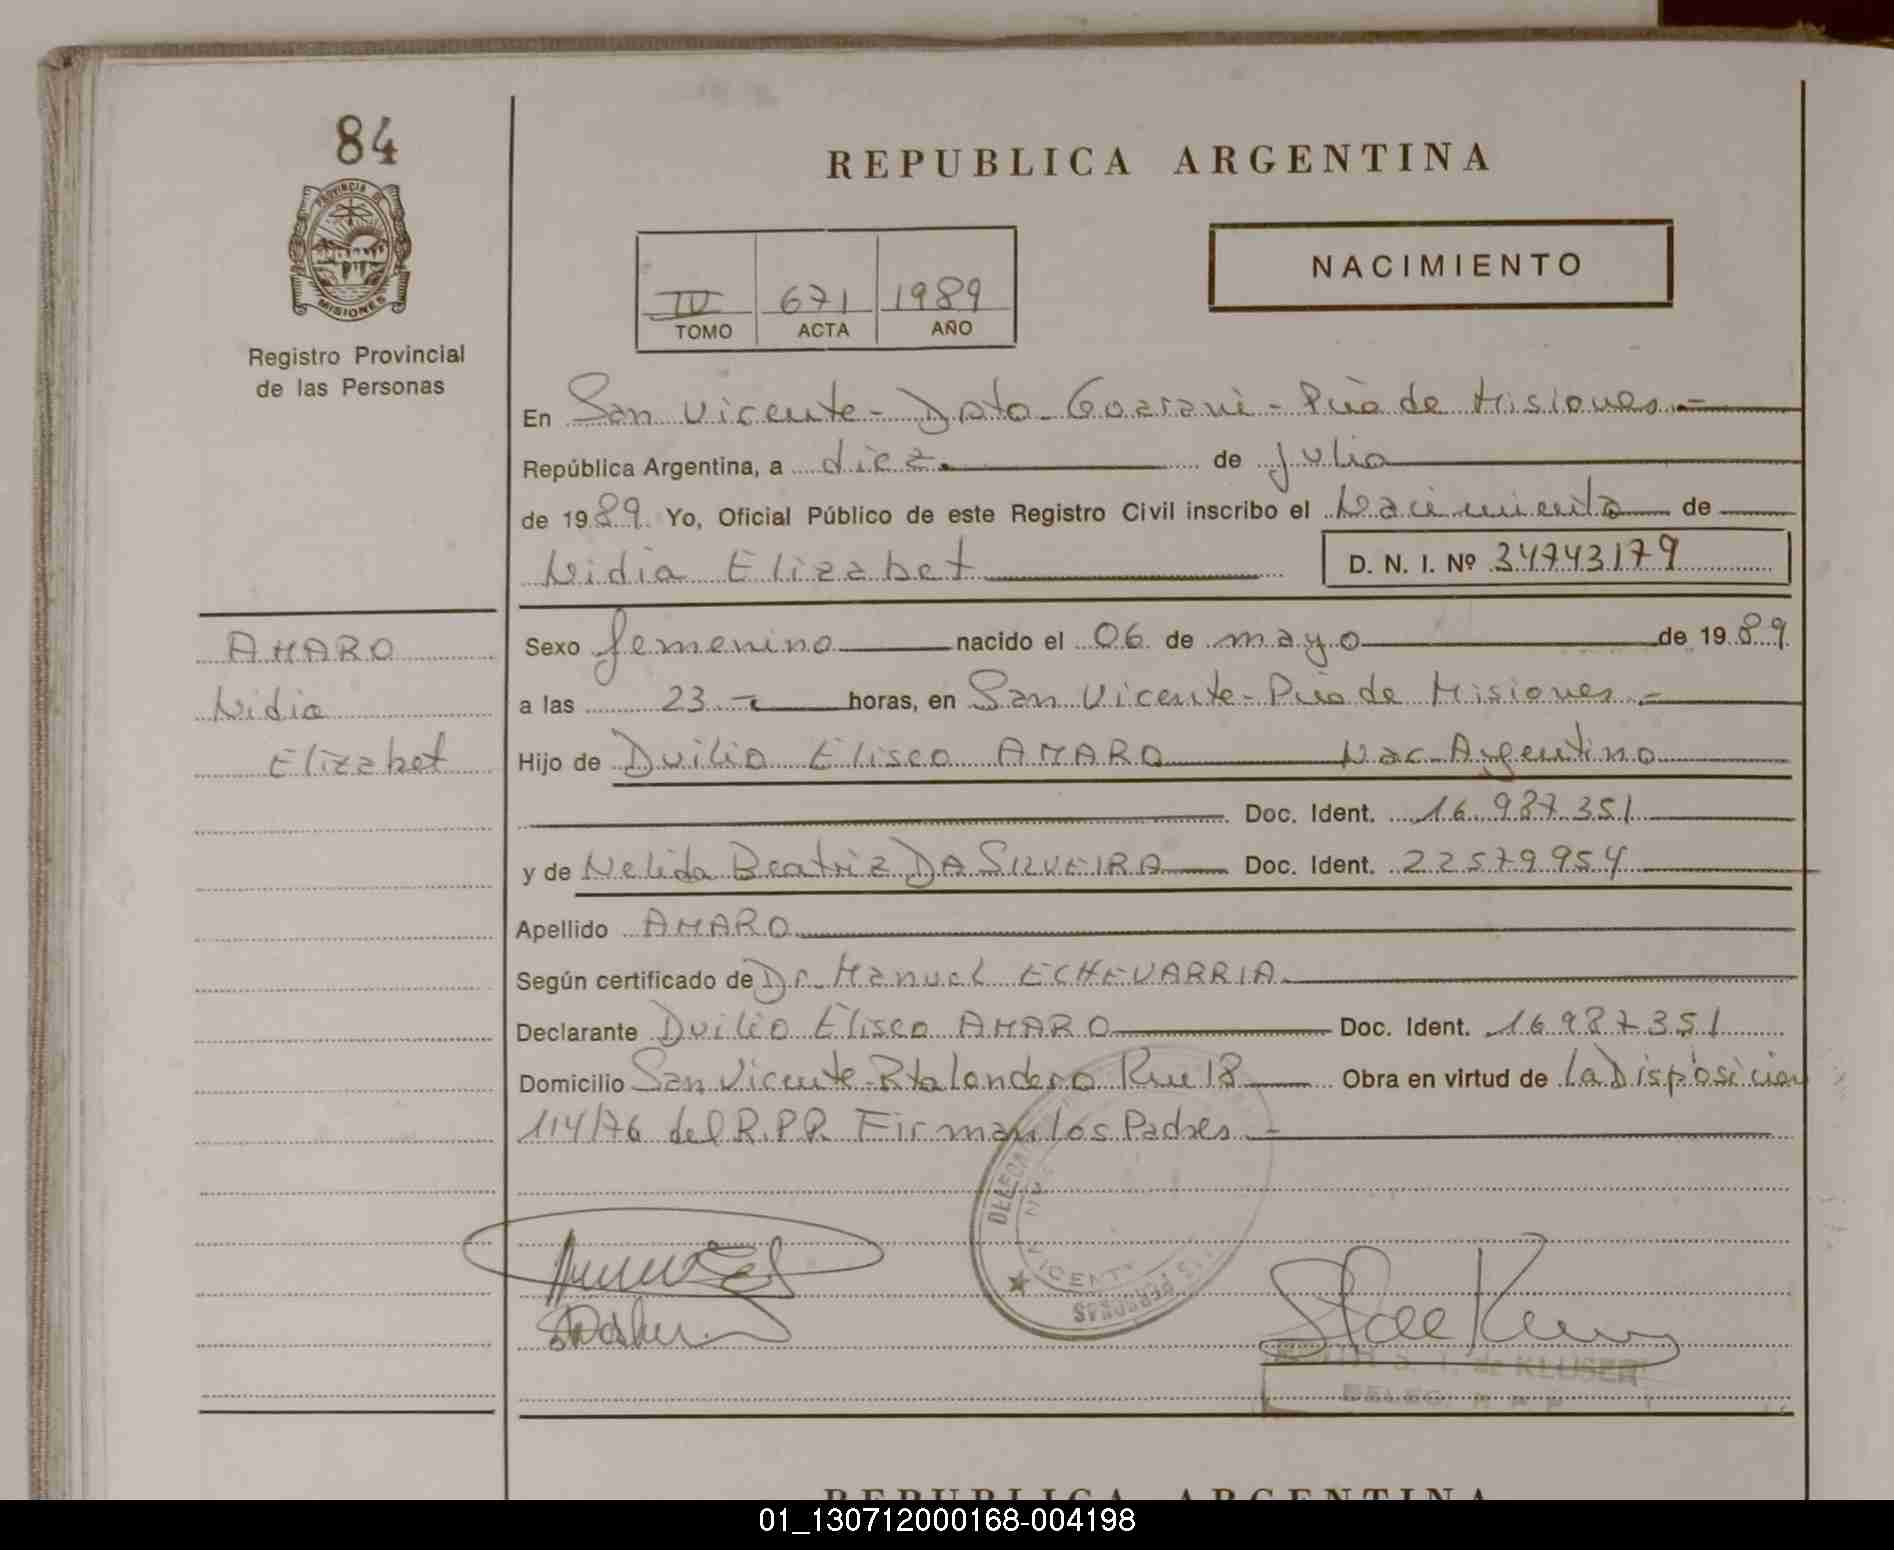 84
REPUBLICA ARGENTINA
PROVINCIA DE
MISIONES
Registro Provincial
de las Personas
NACIMIENTO
IV 671 1989
TOMO ACTA AÑO
En San Vicente - Dpto - Guarani - Pcia de Misiones.-
República Argentina, a diez. de Julio
de 1989. Yo, Oficial Público de este Registro Civil inscribo el Nacimiento de
Nidia Elizabet D. N. I. Nº 34743179
AMARO
Nidia
Elizabet
Sexo femenino nacido el 06 de mayo de 1989
a las 23 - horas, en San Vicente - Pcia de Misiones.-
Hijo de Duilio Eliseo AMARO Nac. Argentino
Doc. Ident. 16.987.351
y de Nelida Beatriz DA SILVEIRA Doc. Ident. 22579954
Apellido AMARO
Según certificado de Dr. Manuel ECHEVARRIA
Declarante Duilio Eliseo AMARO Doc. Ident. 16987351
Domicilio San Vicente - Rta Londero Km 18 Obra en virtud de la Disposicion
114/76 del R.P.P. Firman los Padres -
VICENTE
PERSONAS
de KLUSER
DELEG. R. P. P.
REPUBLICA ARGENTINA
01_130712000168-004198